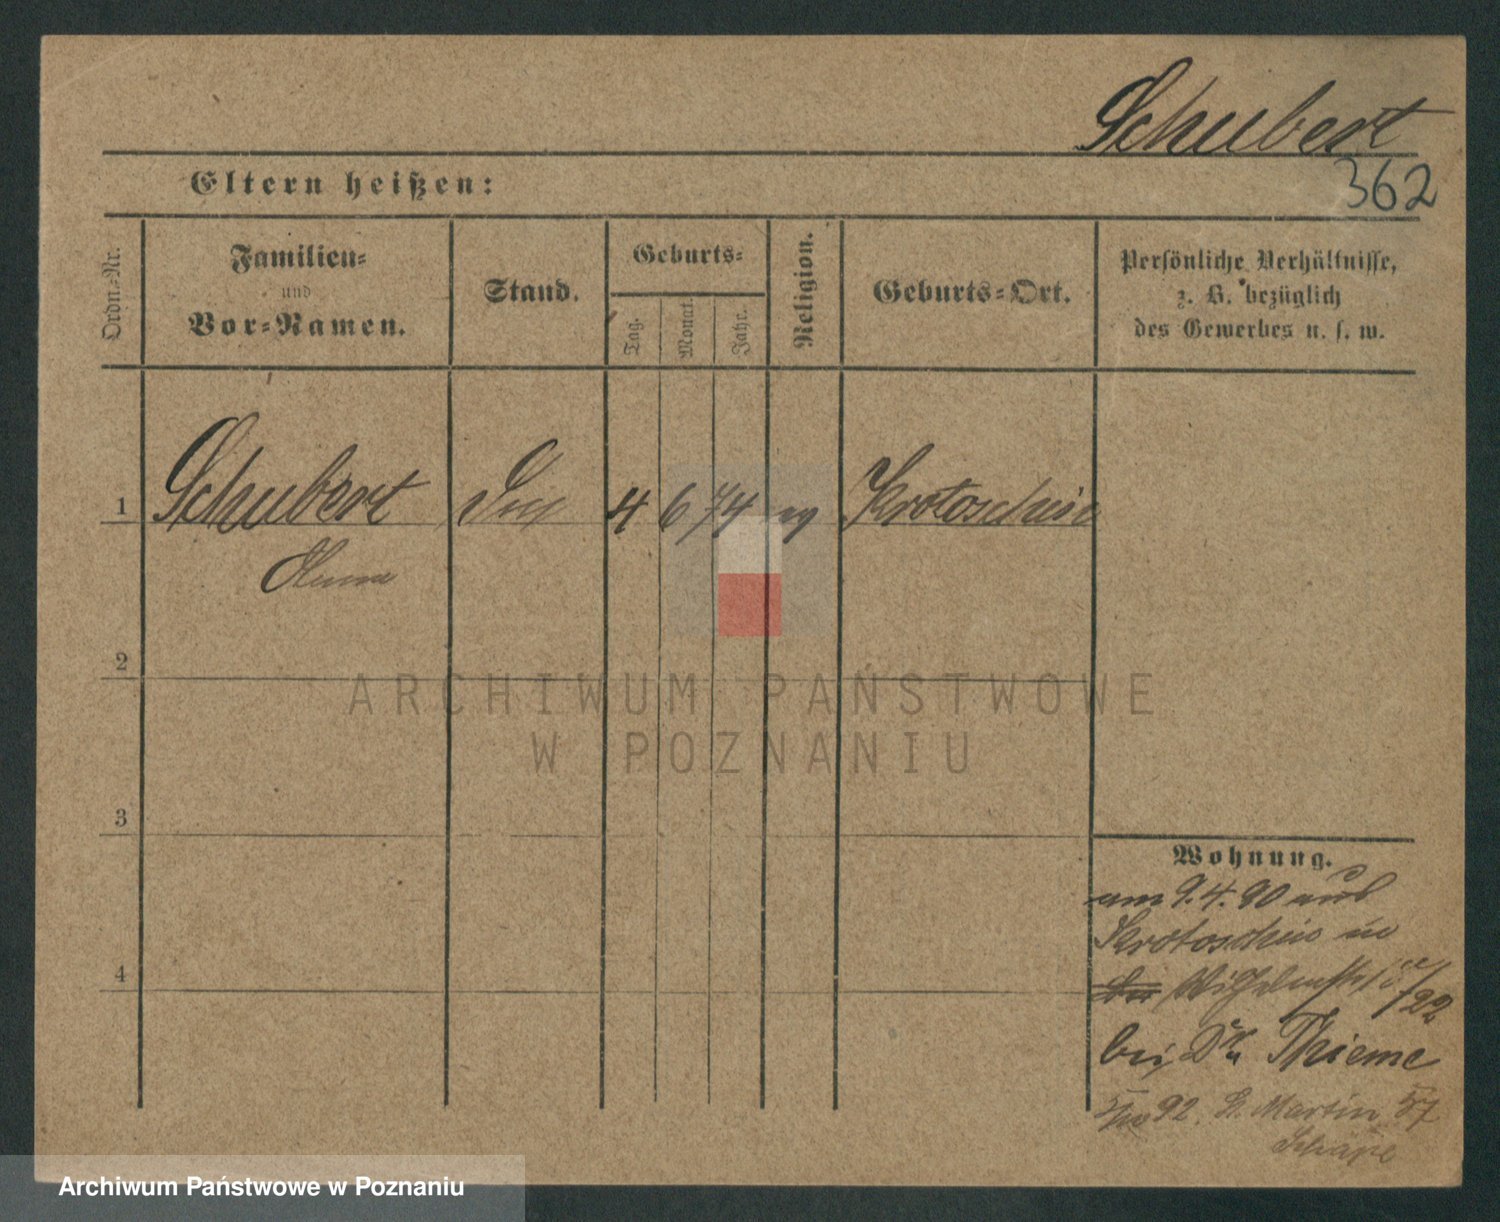 Schubert
362
Eltern heißen:
Ordn.-Nr.
Familien-
und
Vor-Namen.
Stand.
Geburts-
Tag.
Monat.
Jahr.
Religion.
Geburts-Ort.
Persönliche Verhältnisse,
z. B. bezüglich
des Gewerbes u. s. w.
1 Schubert 4 6 74 Krotoschin
2
3
4
Wohnung.
am 9.4.90 aus
Krotoschin in
22
bei Thieme
92 St. Martin 57
ARCHIWUM PAŃSTWOWE
W POZNANIU
Archiwum Państwowe w Poznaniu